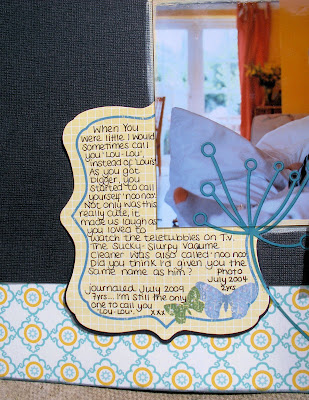 When You
were little I would
sometimes call
you 'Lou-Lou'
instead of 'Louis'
As you got
bigger, you
started to call
yourself 'noo noo'.
Not only was this
really cute, it
made us laugh as
you loved to
watch the teletubbies on T.V.
The Sucky-Slurpy vacume
cleaner was also called 'noo noo'
Did you think I'd given you the
same name as him?
Photo
July 2004
2yrs
journaled July 2009
7yrs.... I'm still the only
one to call you
'Lou-Lou'. xxx